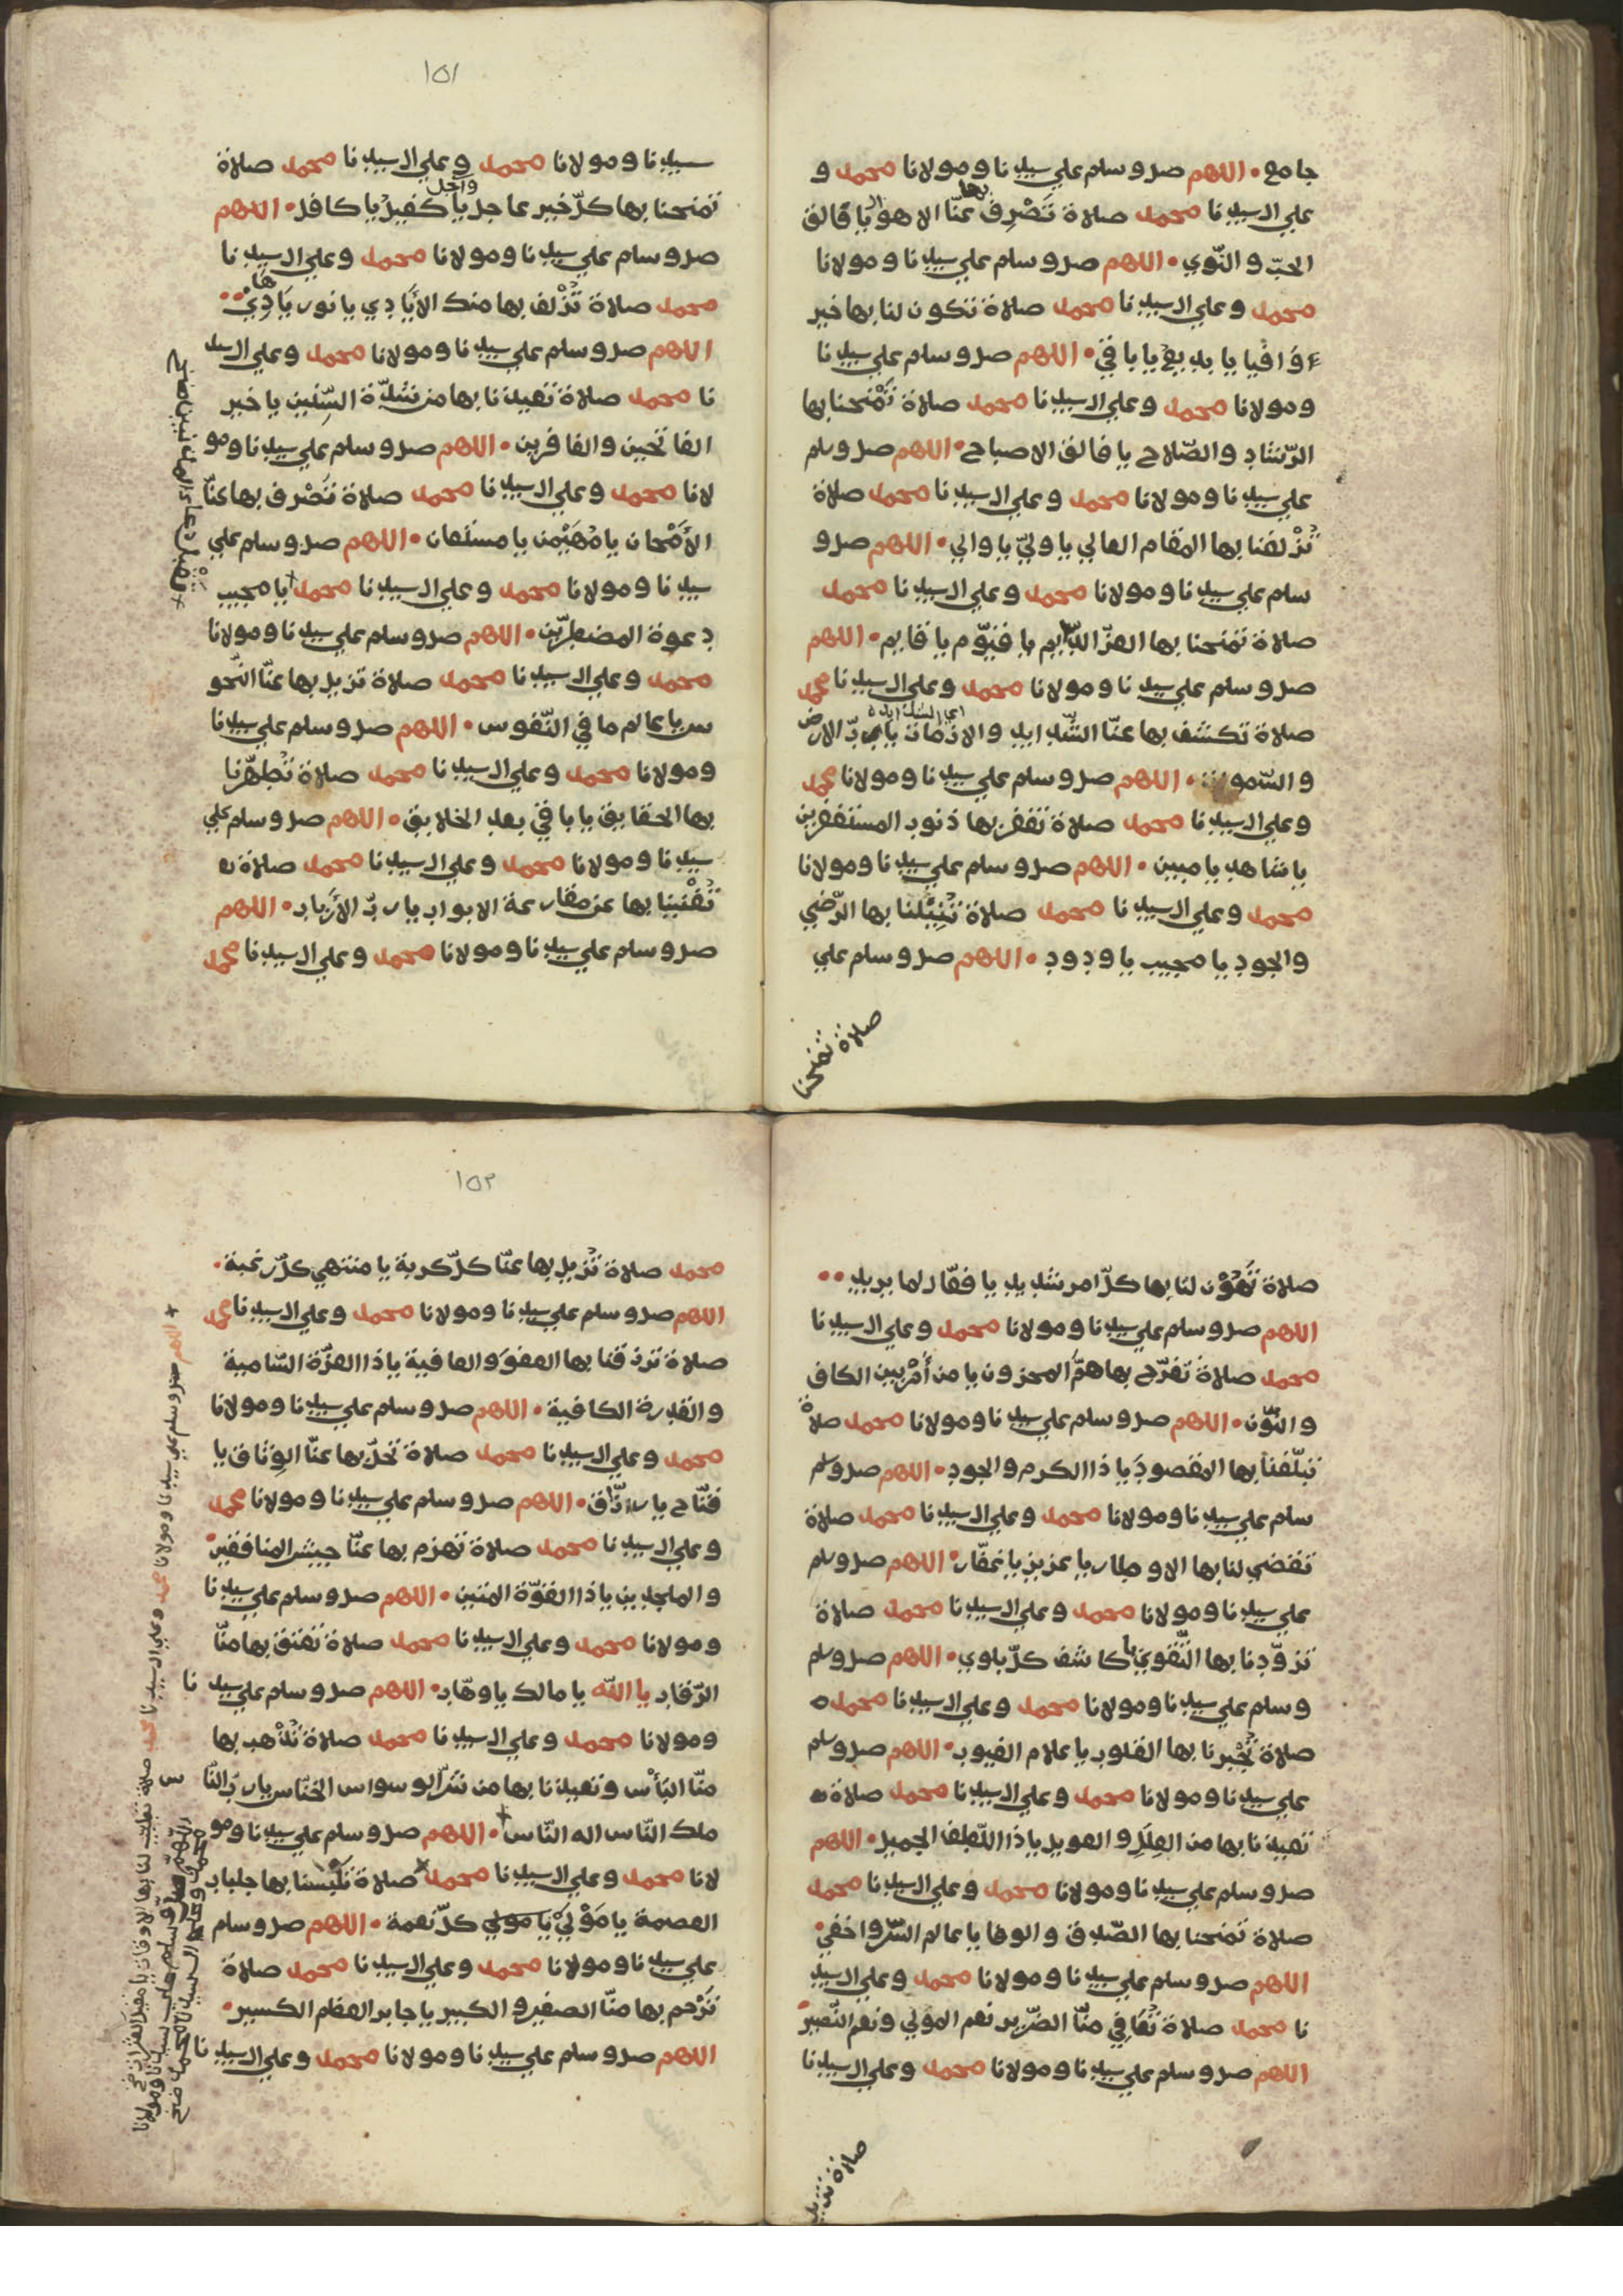 جامع • اللهم صل وسلم علي سيدنا ومولانا محمد و
علي ال سيدنا محمد صلاة تَصْرِف بها عنّا الاهوال يا فالق
الحبّ والنّوي • اللهم صل وسلم علي سيدنا ومولانا
محمد وعلي ال سيدنا محمد صلاة تكون لنا بها خير
وافيا يا بديع يا باقي • اللهم صل وسلم علي سيدنا
ومولانا محمد وعلي ال سيدنا محمد صلاة تَمْنحنا بها
الرّشاد والصّلاح يا فالق الاصباح • اللهم صل وسلم
علي سيدنا ومولانا محمد وعلي ال سيدنا محمد صلاة
تُزْلفنا بها المقام العالي يا وليّ يا والي • اللهم صل و
سلم علي سيدنا ومولانا محمد وعلي ال سيدنا محمد
صلاة تمنحنا بها العزّ الدّايم يا قيّوم يا قايم • اللهم
صل وسلم علي سيدنا ومولانا محمد وعلي ال سيدنا محمد
اي الشدايدة
صلاة تكشف بها عنّا الشّدايد والازمات يا ربّ الارض
والسّموات • اللهم صل وسلم علي سيدنا ومولانا محمد
وعلي ال سيدنا محمد صلاة تغفر بها ذنوب المستغفرين
يا شاهد يا مبين • اللهم صل وسلم علي سيدنا ومولانا
محمد وعلي ال سيدنا محمد صلاة تُنِيْلنا بها الرّضي
والجود يا مجيب يا ودود • اللهم صل وسلم علي
صلاة تمنحنا
١٥١
سيدنا ومولانا محمد وعلي ال سيدنا محمد صلاة
تمنحنا بها كلّ خير عاجل واجل يا كفيل يا كافل • اللهم
صل وسلم علي سيدنا ومولانا محمد وعلي ال سيدنا
محمد صلاة تُزْلف بها منك الاَيَادي يا نور يَا هَادِيْ •
اللهم صل وسلم علي سيدنا ومولانا محمد وعلي ال سيد
نا محمد صلاة تعيذنا بها من شدّة السّنين يا خير
الفاتحين والغافرين • اللهم صل وسلم علي سيدنا ومو
لانا محمد وعلي ال سيدنا محمد صلاة تَصْرف بها عنّا
الاَمْحان يا مُهَيْمن يا مستعان • اللهم صل وسلم علي
سيدنا ومولانا محمد وعلي ال سيدنا محمد يا مجيب
دعوة المضطرّين • اللهم صل وسلم علي سيدنا ومولانا
محمد وعلي ال سيدنا محمد صلاة تزيل بها عنّا النّحو
س يا عالم ما في النّفوس • اللهم صل وسلم علي سيدنا
ومولانا محمد وعلي ال سيدنا محمد صلاة تُطهّرنا
بها الحقايق يا باقي بعد الخلايق • اللهم صل وسلم علي
سيدنا ومولانا محمد وعلي ال سيدنا محمد صلاة
تُغْنينا بها عن مقارعة الابواب يا ربّ الاَرْباب • اللهم
صل وسلم علي سيدنا ومولانا محمد وعلي ال سيدنا محمد
صلاة تُهَوّن لنا بها كلّ امر شديد يا فعّال لما يريد • •
اللهم صل وسلم علي سيدنا ومولانا محمد وعلي ال سيدنا
محمد صلاةً تفرّج بها همّ المحزون يا من اَمْر بين الكاف
والنّون • اللهم صل وسلم علي سيدنا ومولانا محمد صلاة
تبلّغنا بها المقصود يا ذا الكرم والجود • اللهم صل وسلم
سلم علي سيدنا ومولانا محمد وعلي ال سيدنا محمد صلاة
تقضي لنا بها الاوطار يا عزيز يا غفّار • اللهم صل وسلم
علي سيدنا ومولانا محمد وعلي ال سيدنا محمد صلاة
تزوّدنا بها التّقوي يا كاشف كلّ بلوي • اللهم صل وسلم
وسلم علي سيدنا ومولانا محمد وعلي ال سيدنا محمد
صلاة تُجْبرنا بها القلوب يا علام الغيوب • اللهم صل وسلم
علي سيدنا ومولانا محمد وعلي ال سيدنا محمد صلاة
تعيذنا بها من العِلَلِ والعويل يا ذا اللّطف الجميل • اللهم
صل وسلم علي سيدنا ومولانا محمد وعلي ال سيدنا محمد
صلاة تمنحنا بها الصّدق والوفا يا عالم السّر واخفي •
اللهم صل وسلم علي سيدنا ومولانا محمد وعلي ال سيد
نا محمد صلاة تُعَافي منّا الضّرير نعم المولي ونعم النّصير •
اللهم صل وسلم علي سيدنا ومولانا محمد وعلي ال سيدنا
صلاة تزيل
١٥٢
محمد صلاة تُزيل بها عنّا كلّ كربة يا منتهي كلّ رغبة •
اللهم صل وسلم علي سيدنا ومولانا محمد وعلي ال سيدنا محمد
صلاة ترزقنا بها العفوَ والعافية يا ذا العزّة السّامية
والقدرة الكافية • اللهم صل وسلم علي سيدنا ومولانا
محمد وعلي ال سيدنا محمد صلاة تحلّ بها عنّا الوِثاق يا
فتّاح يا رزّاق • اللهم صل وسلم علي سيدنا ومولانا محمد
وعلي ال سيدنا محمد صلاة تهزم بها عنّا جيش المنافقين
والملحدين يا ذا القوّة المتين • اللهم صل وسلم علي سيدنا
ومولانا محمد وعلي ال سيدنا محمد صلاة تعتق بها منّا
الرّقاب يا الله يا مالك يا وهّاب • اللهم صل وسلم علي سيدنا
ومولانا محمد وعلي ال سيدنا محمد صلاة تُذْهب بها
منّا البَأْس وتعيذنا بها من شرّ الوسواس الخنّاس يا ربّ النّاس
ملك النّاس اله النّاس • اللهم صل وسلم علي سيدنا ومو
لانا محمد وعلي ال سيدنا محمد صلاة تلبسنا بها جلباب
العصمة يا مَوْليْ يا مولي كلّ نعمة • اللهم صل وسلم
علي سيدنا ومولانا محمد وعلي ال سيدنا محمد صلاة
تَرْحم بها منّا الصغير والكبير يا جابر العظم الكسير •
اللهم صل وسلم علي سيدنا ومولانا محمد وعلي ال سيدنا
اللهم صل وسلم علي سيدنا ومولانا محمد وعلي ال سيدنا محمد صلاة لنا بها